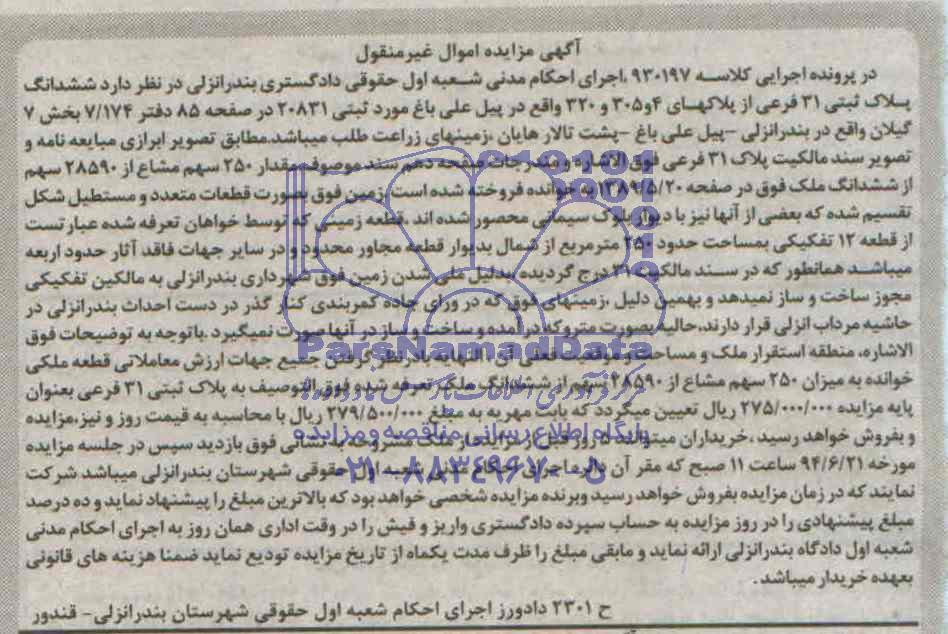 آگهی مزایده اموال غیرمنقول
در پرونده اجرایی کلاسه ۹۳۰۱۹۷ ،اجرای احکام مدنی شعبه اول حقوقی دادگستری بندرانزلی در نظر دارد ششدانگ
پلاک ثبتی ۳۱ فرعی از پلاکهای ۴و۳۰۵ و ۳۲۰ واقع در پیل علی باغ مورد ثبتی ۲۰۸۳۱ در صفحه ۸۵ دفتر ۷/۱۷۴ بخش ۷
گیلان واقع در بندرانزلی -پیل علی باغ -پشت تالار هایان ،زمینهای زراعت طلب میباشد.مطابق تصویر ابرازی مبایعه نامه و
تصویر سند مالکیت پلاک ۳۱ فرعی فوق الاشاره و مندرجات صفحه دهم سند موصوف مقدار ۲۵۰ سهم مشاع از ۲۸۵۹۰ سهم
از ششدانگ ملک فوق در صفحه ۱۳۸۹/۵/۲۰ به خوانده فروخته شده است .زمین فوق بصورت قطعات متعدد و مستطیل شکل
تقسیم شده که بعضی از آنها نیز با دیوار بلوک سیمانی محصور شده اند ،قطعه زمینی که توسط خواهان تعرفه شده عبارتست
از قطعه ۱۲ تفکیکی بمساحت حدود ۲۵۰ مترمربع از شمال بدیوار قطعه مجاور محدود و در سایر جهات فاقد آثار حدود اربعه
میباشد همانطور که در سند مالکیت ۳۱ درج گردیده ،بدلیل ملی شدن زمین فوق شهرداری بندرانزلی به مالکین تفکیکی
مجوز ساخت و ساز نمیدهد و بهمین دلیل ،زمینهای فوق که در ورای جاده کمربندی کنار گذر در دست احداث بندرانزلی در
حاشیه مرداب انزلی قرار دارند،حالیه بصورت متروکه در آمده و ساخت و ساز در آنها صورت نمیگیرد .باتوجه به توضیحات فوق
الاشاره، منطقه استقرار ملک و مساحت و موقعیت فعلی آن ، النهایه بادر نظر گرفتن جمیع جهات ارزش معاملاتی قطعه ملکی
خوانده به میزان ۲۵۰ سهم مشاع از ۲۸۵۹۰ سهم از ششدانگ ملک تعرفه شده فوق التوصیف به پلاک ثبتی ۳۱ فرعی بعنوان
پایه مزایده ۲۷۵/۰۰۰/۰۰۰ ریال تعیین میگردد که بابت مهریه به مبلغ ۲۷۹/۵۰۰/۰۰۰ ریال با محاسبه به قیمت روز و نیز،مزایده
و بفروش خواهد رسید ،خریداران میتوانند ۵ روز قبل از ملک به نشانی فوق بازدید سپس در جلسه مزایده
مورخه ۹۴/۶/۲۱ ساعت ۱۱ صبح که مقر آن دایره اجرای احکام مدنی شعبه اول حقوقی شهرستان بندرانزلی میباشد شرکت
نمایند که در زمان مزایده بفروش خواهد رسید وبرنده مزایده شخصی خواهد بود که بالاترین مبلغ را پیشنهاد نماید و ده درصد
مبلغ پیشنهادی را در روز مزایده به حساب سپرده دادگستری واریز و فیش را در وقت اداری همان روز به اجرای احکام مدنی
شعبه اول دادگاه بندرانزلی ارائه نماید و مابقی مبلغ را ظرف مدت یکماه از تاریخ مزایده تودیع نماید ضمنا هزینه های قانونی
بعهده خریدار میباشد .
ح ۲۳۰۱ دادورز اجرای احکام شعبه اول حقوقی شهرستان بندرانزلی- قندور
ParsNamadData
پایگاه اطلاع رسانی مناقصه و مزایده
۰۲۱-۸۸۳۴۹۶۷۰-۵